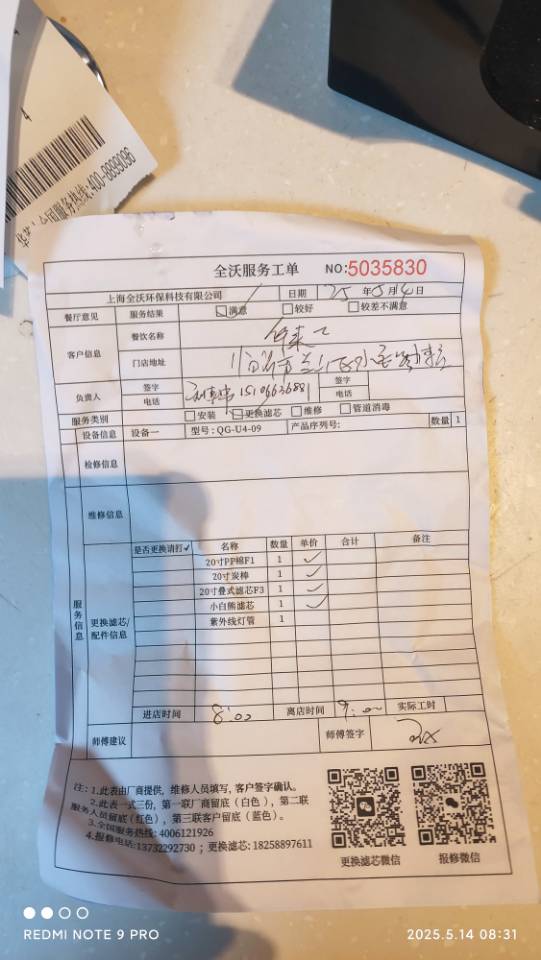 4
服务热线: 400-8899096
全沃服务工单 NO:5035830
上海全沃环保科技有限公司 日期 25 年 5 月 14 日
餐厅意见 服务结果 满意 较好 较差不满意
客户信息 餐饮名称
门店地址
负责人 签字 签字
电话 15106636881 电话
服务类别 安装 更换滤芯 维修 管道消毒
设备信息 设备一 型号: QG-U4-09 产品序列号: 数量 1
检修信息
维修信息
服务信息
更换滤芯/配件信息
是否更换请打✓ 名称 数量 单价 合计 备注
20寸PP棉F1 1 ✓
20寸炭棒 1 ✓
20寸叠式滤芯F3 1 ✓
小白熊滤芯 1 ✓
紫外线灯管 1
进店时间 8:00 离店时间 9:00 实际工时
师傅建议 师傅签字
注: 1.此表由厂商提供, 维修人员填写, 客户签字确认。
2.此表一式三份, 第一联厂商留底 (白色), 第二联
服务人员留底(红色), 第三联客户留底 (蓝色)。
3.全国服务热线: 4006121926
4.报修电话:13732292730 ; 更换滤芯: 18258897611
更换滤芯微信 报修微信
REDMI NOTE 9 PRO 2025.5.14 08:31